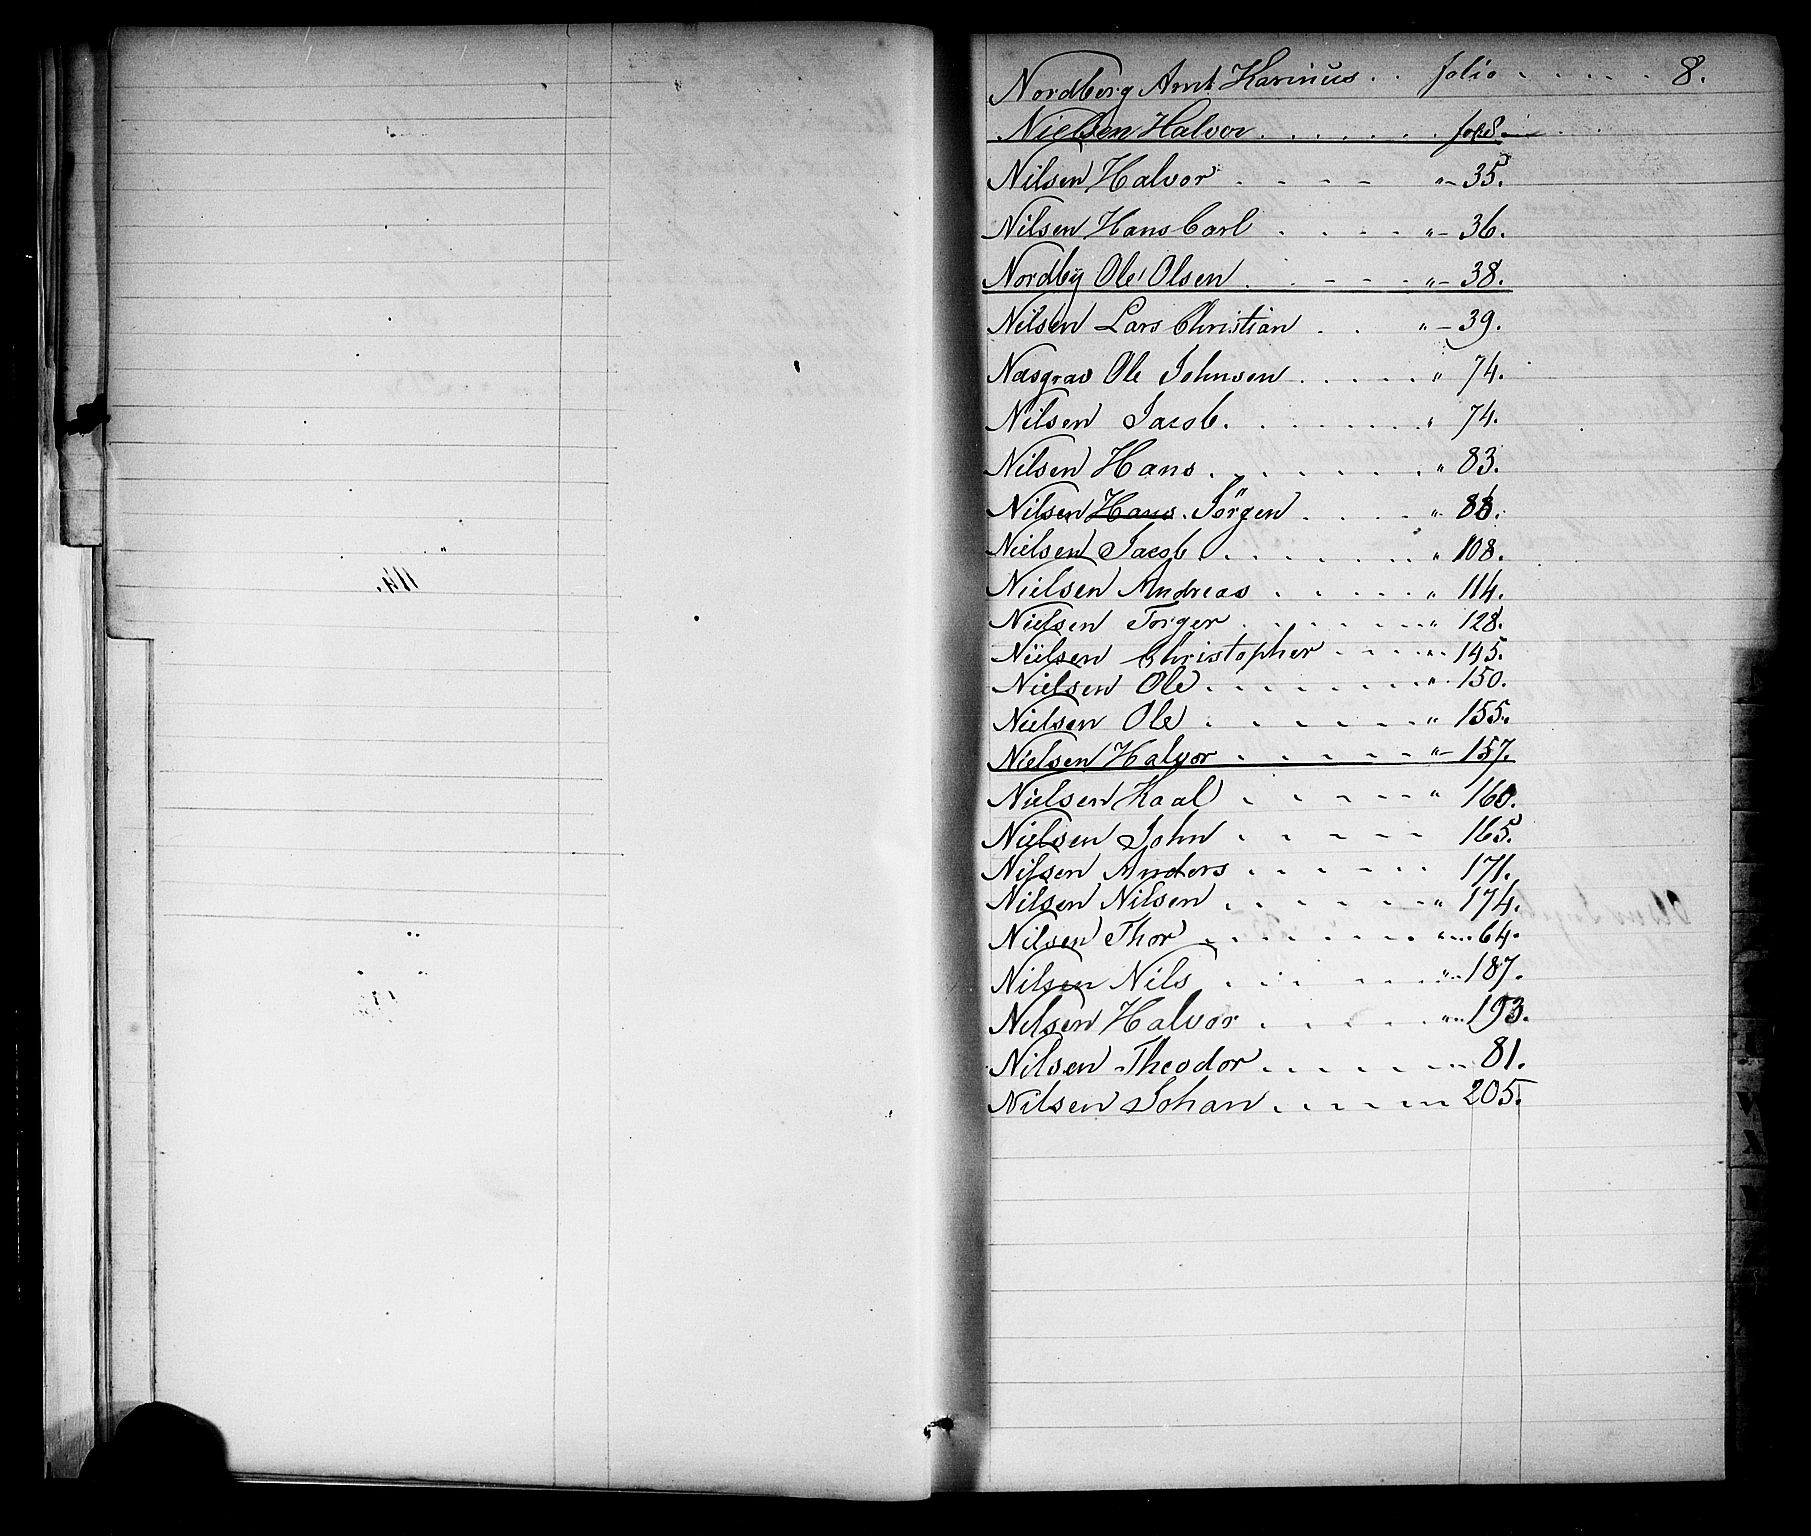 Nordberg Arnt Karinius . . folio . . . . . 8.
Nielsen Halvor . . . . . . fol 8
Nilsen Halvor . - - - " - 35.
Nilsen Hans Carl . . . . " - 36.
Nordby Ole Olsen . . - - - " - 38.
Nilsen Lars Christian . . " - 39.
Næsgras Ole Johnsen . . . . . " 74.
Nilsen Jacob . . . . . . . " 74.
Nilsen Hans . . . . . . . " 83.
Nilsen Hans . Jörgen . . . . . "
Nielsen Jacob . . . . . . " 108.
Nielsen Andreas . . . . . " 114.
Nielsen Torger . . . . . . " 128.
Nielsen Christopher . . . . . " 145.
Nielsen Ole . . . . . . . " 150.
Nielsen Ole . . . . . . " 155.
Nielsen Halvor . . . . . . " - 157.
Nielsen Kaal . . . . . " 160.
Nielsen John . . . . . 165.
Nilsen Anders . . . . . . 171.
Nilsen Nilsen . . . . . . " 174.
Nilsen Thor . . . . . . " 64.
Nilsen Nils . . . . . . " 187.
Nilsen Halvor . . . . . " 193.
Nilsen Theodor . . . . . . . 81.
Nilsen Johan . . . . . . 205.